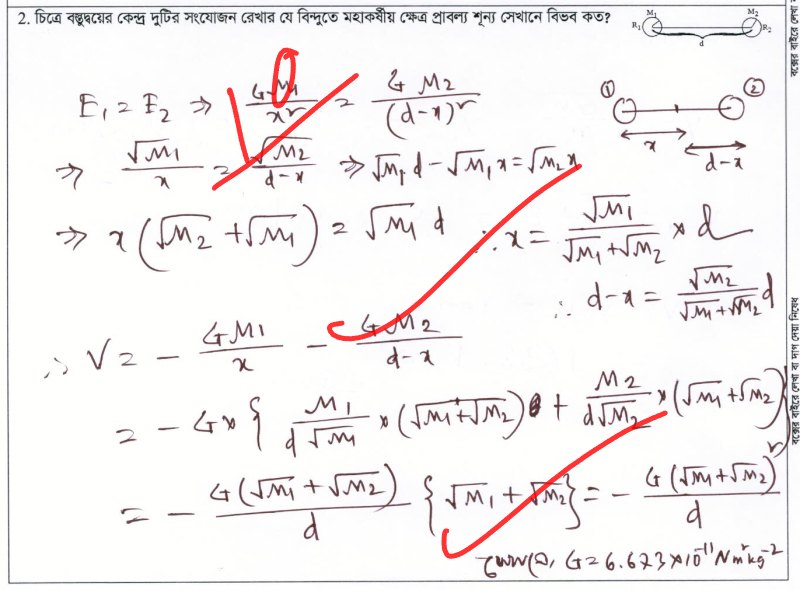 2. চিত্রে বস্তুদ্বয়ের কেন্দ্র দুটির সংযোজন রেখার যে বিন্দুতে মহাকর্ষীয় ক্ষেত্র প্রাবল্য শূন্য সেখানে বিভব কত?
M₁ M₂
R₁ R₂
d
E₁ = E₂ ⇒ GM₁/x² = GM₂/(d-x)²
① ②
x d-x
⇒ √M₁/x = √M₂/(d-x) ⇒ √M₁ d - √M₁ x = √M₂ x
⇒ x(√M₂ + √M₁) = √M₁ d ∴ x = √M₁/(√M₁+√M₂) × d
∴ d-x = √M₂/(√M₁+√M₂) d
∴ V = - GM₁/x - GM₂/(d-x)
= - G × { M₁/(d√M₁) × (√M₁+√M₂) + M₂/(d√M₂) × (√M₁+√M₂) }
= - G(√M₁+√M₂)/d {√M₁+√M₂} = - G(√M₁+√M₂)²/d
যেখানে, G = 6.673×10⁻¹¹ Nm²kg⁻²
বক্সের বাইরে লেখা বা দাগ দেয়া নিষেধ
বক্সের বাইরে লেখা